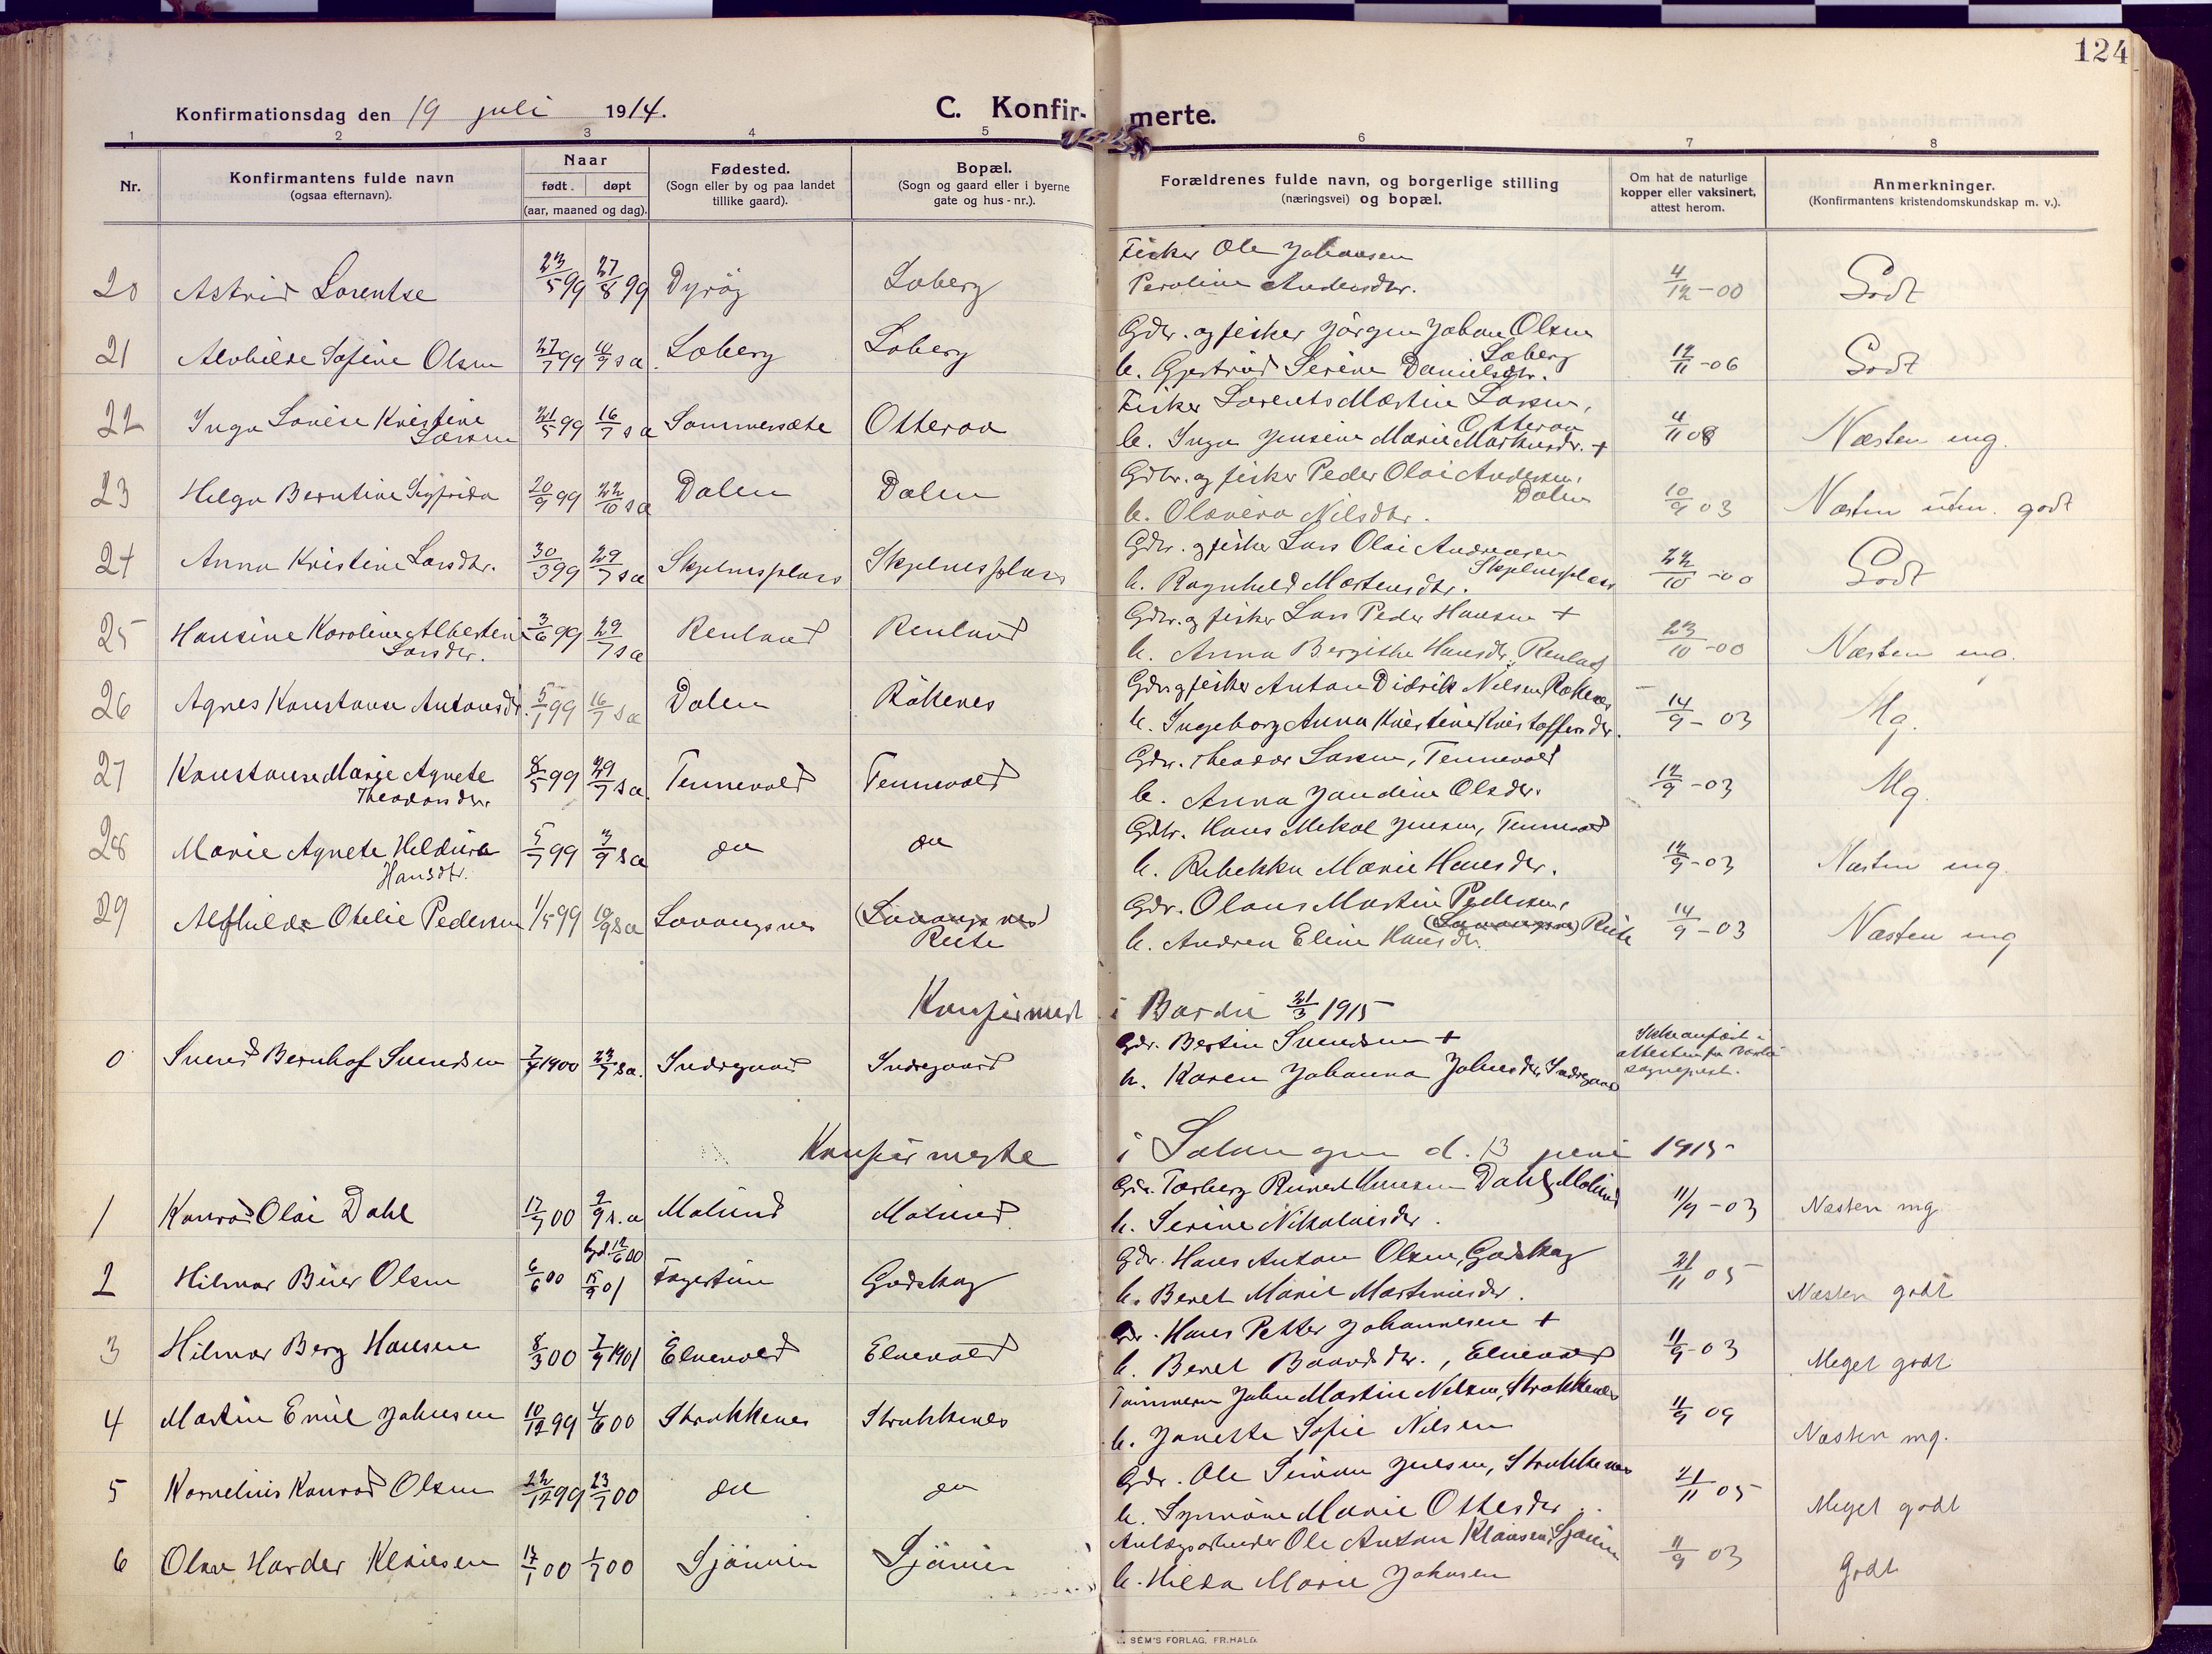 124
Konfirmationsdag den 19 juli 1914.
C. Konfir-merte.
1 2 3 4 5 6 7 8
Nr.
Konfirmantens fulde navn
(ogsaa efternavn).
Naar
født. døpt
(aar, maaned og dag).
Fødested.
(Sogn eller by og paa landet
tillike gaard).
Bopæl.
(Sogn og gaard eller i byerne
gate og hus-nr.).
Forældrenes fulde navn, og borgerlige stilling
(næringsvei) og bopæl.
Om hat de naturlige
kopper eller vaksinert,
attest herom.
Anmerkninger.
(Konfirmantens kristendomskundskap m. v.).
Fisker Ole Johansen
20 Astrid Lorentse 23/5 99 27/8 99 Dyröy Soberg Peroline Andersdtr. 4/12-00 Godt
Gdr. og fisker Jörgen Johan Olsen
Soberg
21 Alvhilde Sofine Olsen 27/7 99 10/9 s a Soberg Soberg h. Gjertrud Serine Danielsdtr. 12/11-06 Godt
Fisker Lorents Martin Larsen,
Otteraa
22 Inga Lovise Kristine 21/5 99 16/7 s a Sommersæte Otteraa h. Inga Jensine Marie Markusdr. + 4/11 08 Næsten mg.
Larsen
Gdbr. og fisker Peder Olai Andersen,
Dalen
23 Helga Berntine Sigfrida 20/9 99 22/10 s a Dalen Dalen h. Olavera Nilsdtr. 10/9 03 Næsten utm. godt
Gdr. og fisker Lars Olai Andreasen
Skjelnesplass
24 Anna Kristine Larsdtr. 30/3 99 29/7 s a Skjelnesplass Skjelnesplass h. Ragnhild Martensdtr. 22/10-00 Godt
Gdr. og fisker Lars Peder Hansen +
25 Hansine Karoline Albertine 3/6 99 29/7 s a Renland Renland h. Anna Bergithe Hansdr., Renland 23/10-00 Næsten mg.
Larsdtr.
Gdr og fisker Anton Didrik Nilsen Rökenes
26 Agnes Konstanse Antonsdr. 5/1 99 16/7 s a Dalen Rökenes h. Ingeborg Anna Kristine Kristoffersdr. 14/9-03 Mg.
Gdr. Theodor Larsen, Tennevold
27 Konstanse Marie Agnete 8/5 99 29/7 s a. Tennevold Tennevold h. Anna Jandine Olsdtr. 12/9-03 Mg.
Theodorsdtr.
Gdbr. Hans Mikal Jensen, Tennevold
28 Marie Agnete Heldine 5/7 99 3/9 s a do do h. Rebekka Marie Hansdtr. 12/9-03 Næsten mg.
Hansdtr.
Gdr. Olaus Martin Pedersen,
(Lavangsnes) Röite
29 Alfhilde Otelie Pedersen 1/5 99 10/9 s a Lavangsnes (Lavangsnes) h. Andrea Eline Hansdr. 14/9-03 Næsten mg
Konfirmert i Bardu 21/3 1915
Gdr. Bertin Svendsen +
0 Sverd Bernhof Svendsen 7/4 1900 23/7 s a. Indregaard Indregaard h. Karen Johanna Johnsdr, Indregaard Ikke anført i
attesten fra Bardu
sogneprest.
Konfirmerte i Salangen d. 13 juni 1915
Gdr. Torberg Rinert Knudsen Dahl, Molund
1 Konrad Olai Dahl 17/7 00 9/9 s. a Molund Molund h. Serine Nikolaisdtr. 11/9-03 Næsten mg
hjd. 12/6 00
Gdr. Hans Anton Olsen, Godskog
2 Hilmar Biler Olsen 6/6 00 15/9 01 Fagertun Godskog h. Beret Marie Martinusdr. 21/11 05 Næsten godt
Gdr. Hans Petter Johannesen +
3 Hilmar Berg Hansen 8/3 00 7/9 1901 Elvevold Elvevold h. Beret Baardsdr., Elvevold 11/9-03 Meget godt
Tömmerm John Martin Nilsen, Strokkenes
4 Martin Emil Johnsen 10/12 99 4/6 00 Strokkenes Strokkenes h. Janette Sofie Nilsen 11/9 09 Næsten mg.
Gdr. Ole Simon Jensen, Strokkenes
5 Kornelius Konrad Olsen 22/12 99 23/7 00 do do h. Synnöve Marie Ottesdtr. 21/11 05 Meget godt
Anlægsarbeider Ole Anton Klausen, Sjövein
6 Olav Harder Klausen 17/1 00 1/7 00 Sjövein Sjövein h. Hilda Marie Johnsen 11/9 03 Godt
SEM'S FORLAG, FR.HALD.